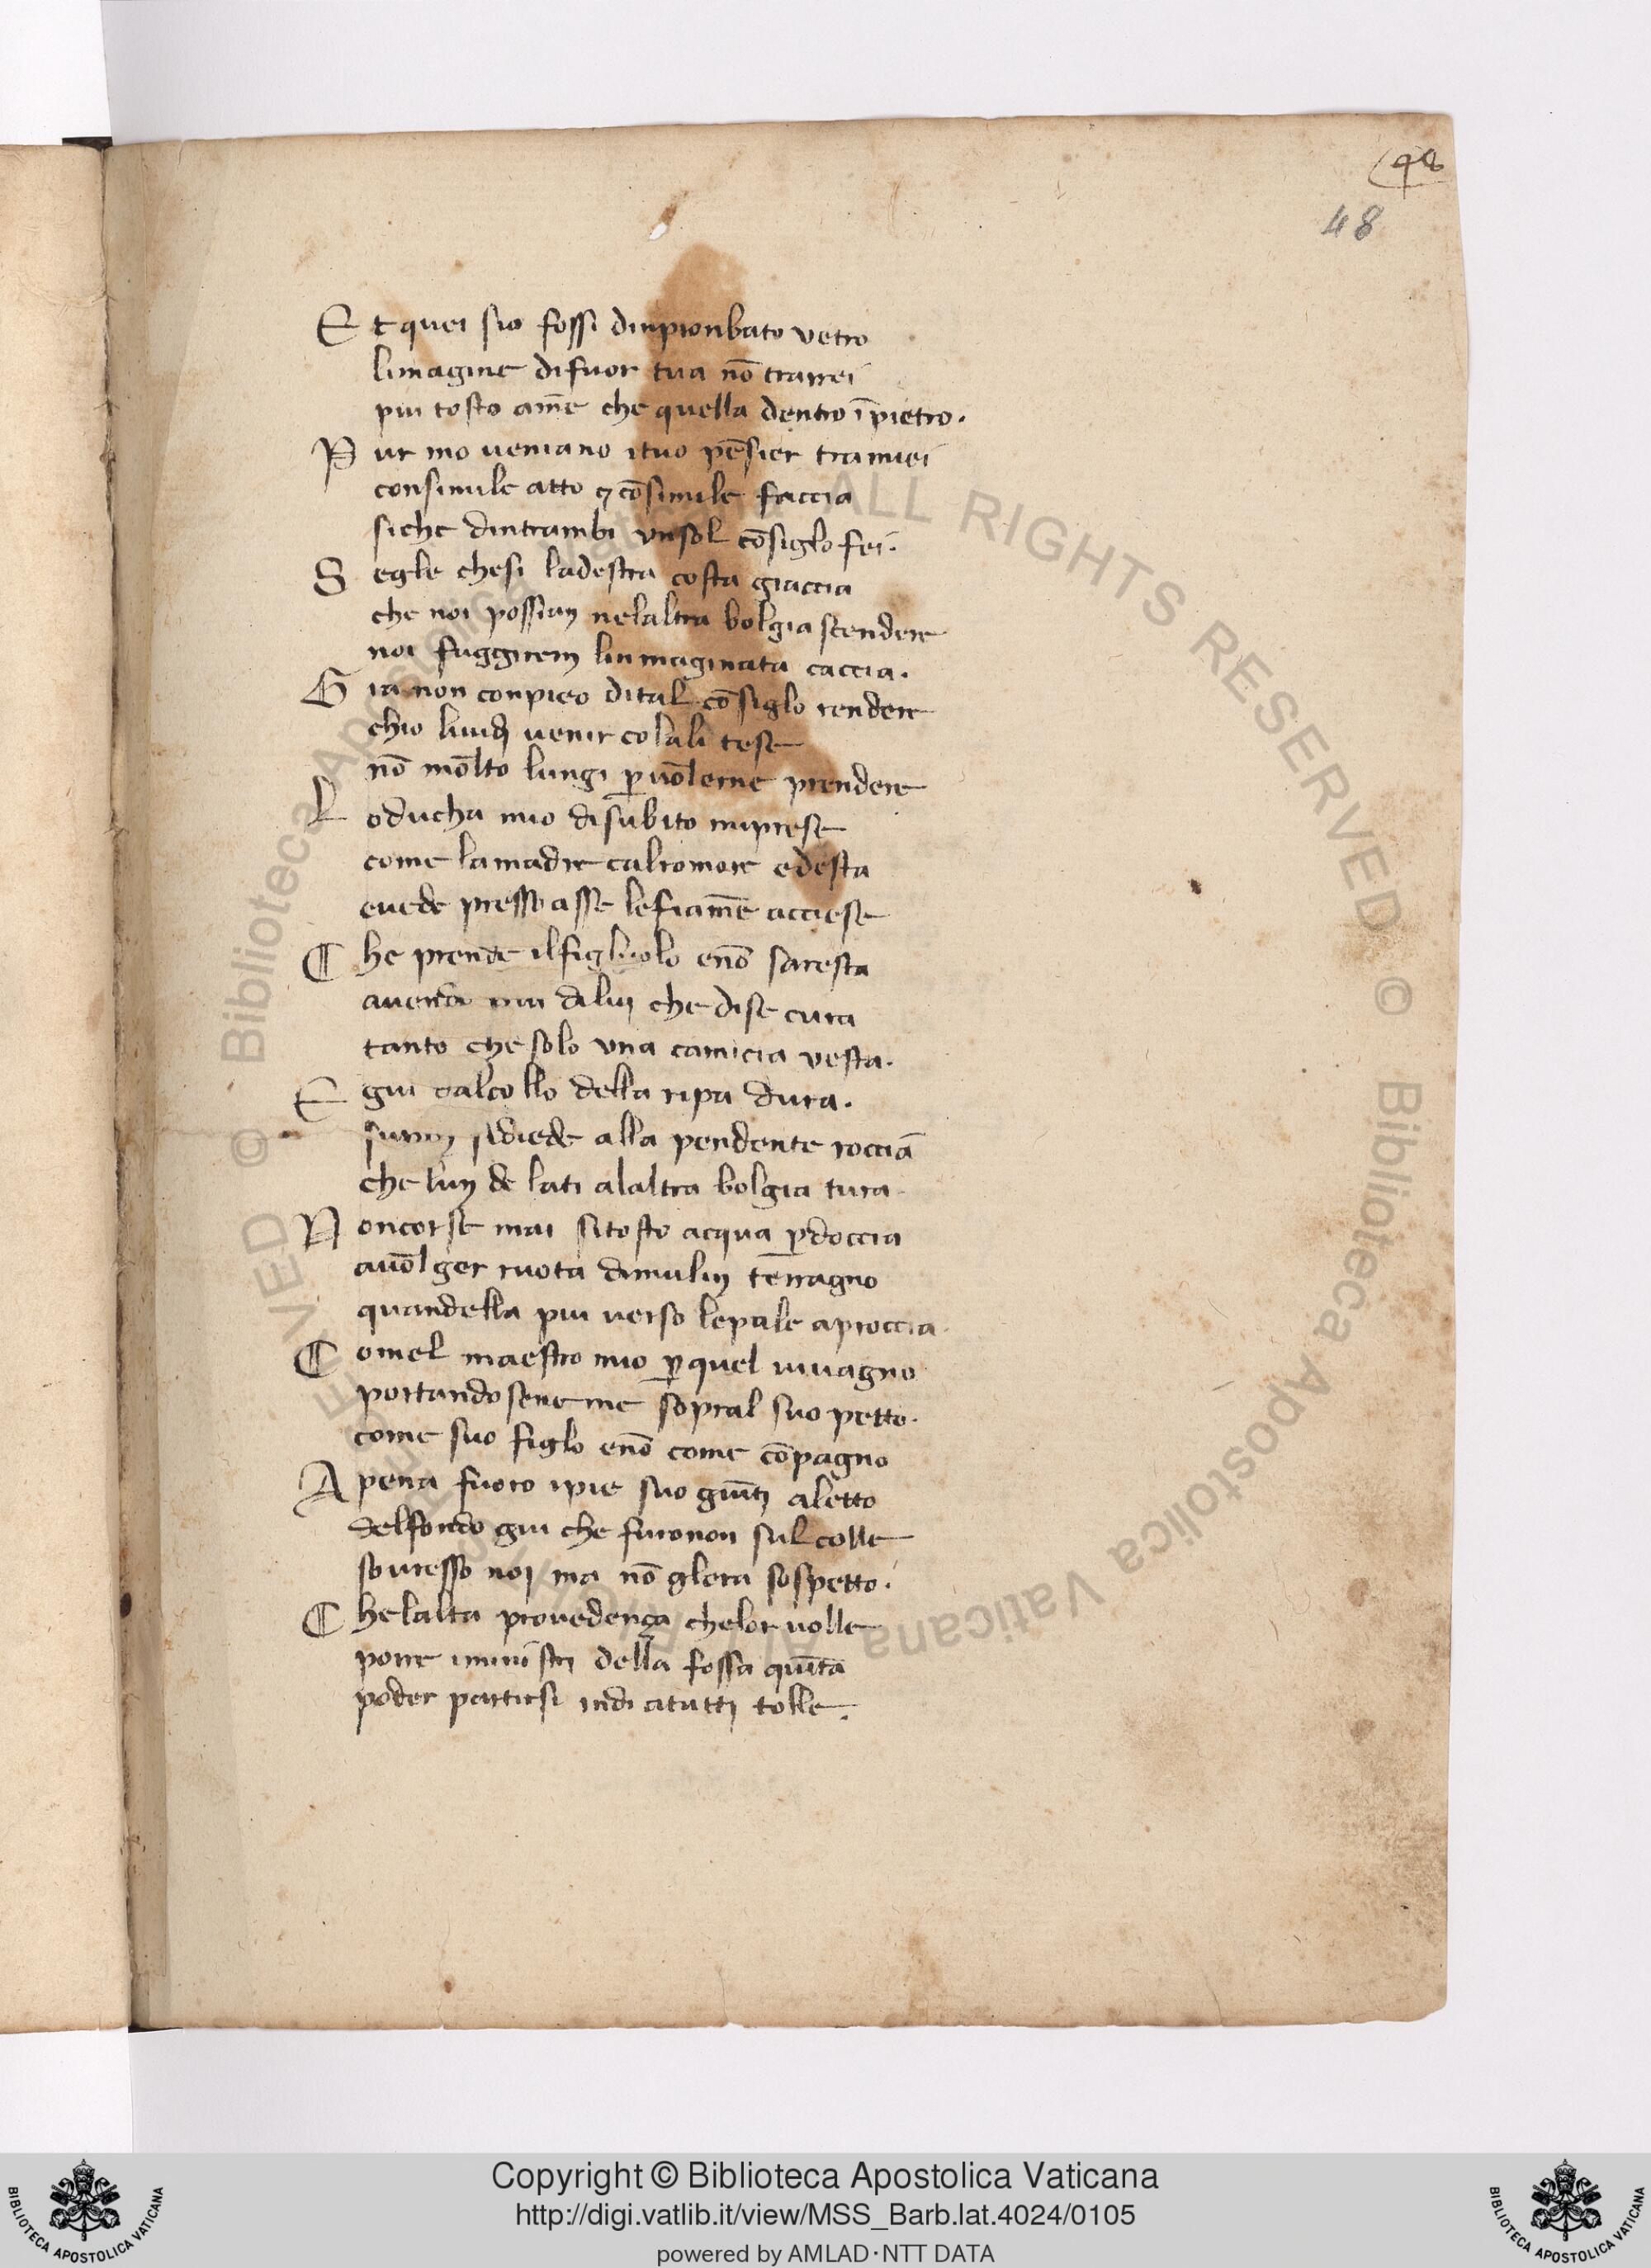 48
48
E t quei sio fossi dinpionbato vetro
limagine di fuor tua nō trarrei
piu tosto amē che quella dentro īpietro.
P ur mo ueniano ituo pēsier tramiei
consimile atto ⁊ cōsimile faccia
siche dintrambi vnsol cōsiglo fei.
S egle chesi ladestra costa giaccia
che noi possian nelaltra bolgia scendere
noi fuggirem linmaginata caccia.
G ia non conpieo dital cōsiglo rendere
chio liuidi uenir colali tese
nō mōlto lungi ꝑuōlerne prendere
L oducha mio disubito miprese
come lamadre calromore edesta
euede presso asse lefiamē acciese
C he prende ilfigliuolo enō saresta
auendo piu dilui che dise cura
tanto che solo vna camicia vesta.
E giu dalcollo della ripa dura.
supin sidiede alla pendente roccia
che lun de lati alaltra bolgia tura.
N oncorse mai sitosto acqua ꝑdoccia
auōlger ruota dimulin terragno
quandella piu uerso lepale aproccia.
C omel maestro mio ꝑquel uiuagno
portandosene me sopral suo petto.
come suo figlo enō come cōpagno
A pena fuoro ipie suo giūti aletto
delfondo giu che furonon sul colle
souresso noi ma nō glera sospetto.
C helalta prouedença chelor uolle
porre iministri della fossa quīta
poder partirsi indi atutti tolle.
© Biblioteca Apostolica Vaticana ALL RIGHTS RESERVED © Biblioteca Apostolica Vaticana ALL RIGHTS RESERVED
Copyright © Biblioteca Apostolica Vaticana
http://digi.vatlib.it/view/MSS_Barb.lat.4024/0105
powered by AMLAD·NTT DATA
BIBLIOTECA APOSTOLICA VATICANA
BIBLIOTECA APOSTOLICA VATICANA